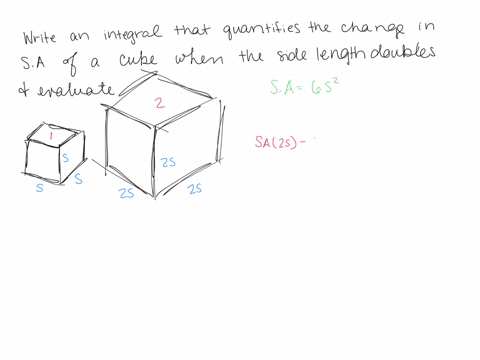 Write an integral that quantifies the change in
S.A of a cube when the side length doubles
& evaluate
S.A = 6s²
2
1
s
s
s
2s
2s
2s
SA(2s) -